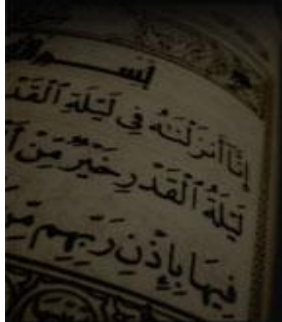 بِسْمِ
إِنَّا أَنزَلْنَٰهُ فِى لَيْلَةِ ٱلْقَدْ
لَيْلَةُ ٱلْقَدْرِ خَيْرٌ مِّنْ أَ
فِيهَا بِإِذْنِ رَبِّهِم مِّن